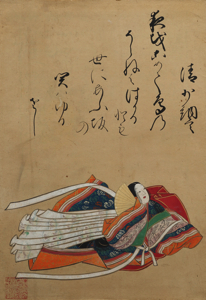 清少納言
夜越こめて鳥乃
そらねははかる
とも
世にあふ坂
の
関はゆる
さし